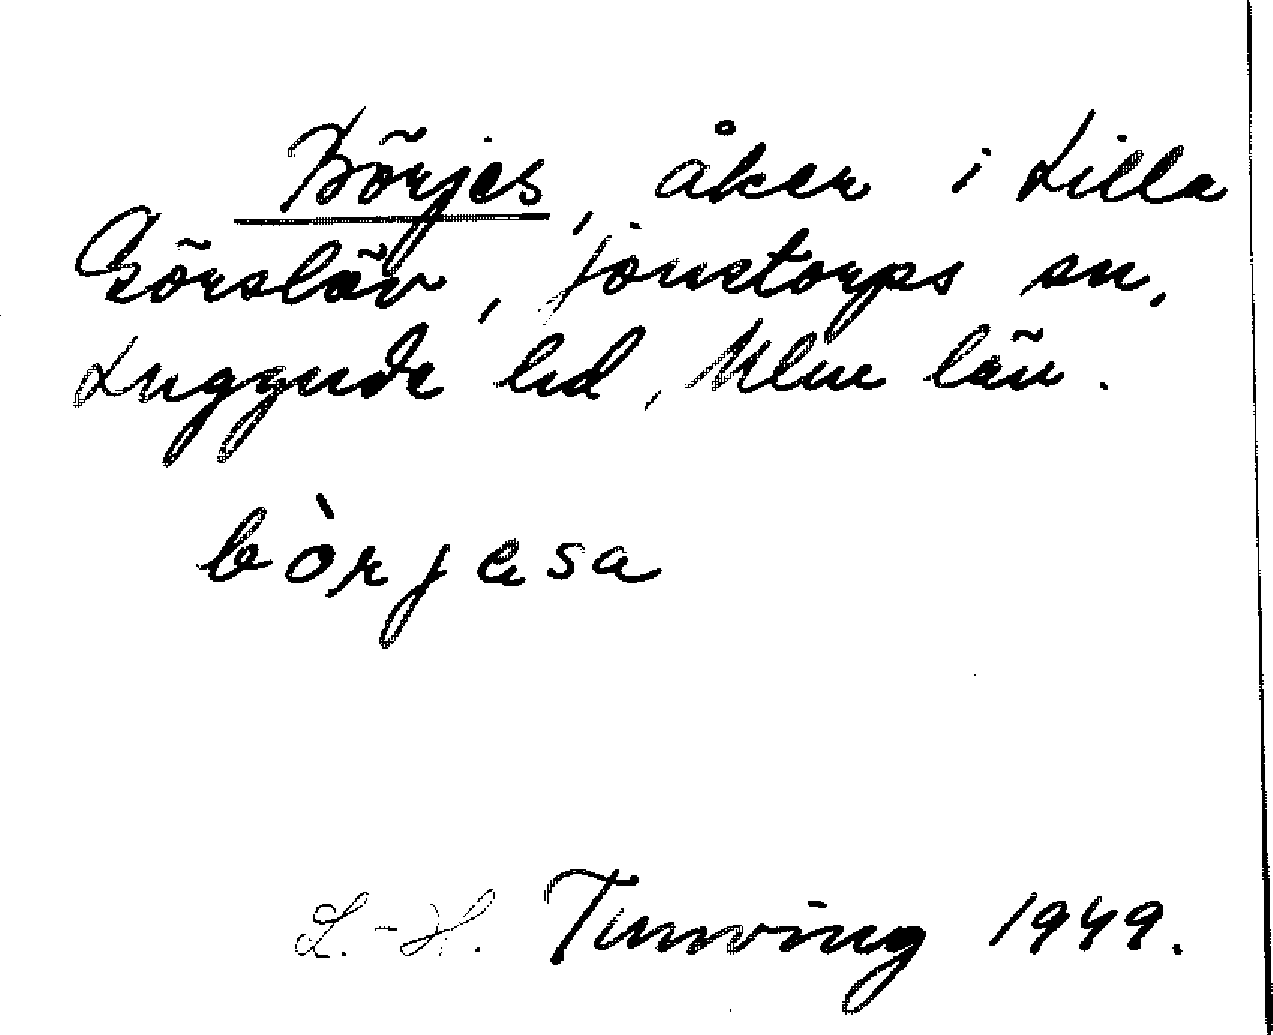 Börjes, åker i Lilla
Görslöv, Jonstorps sn,
Luggude hd, Mlm län.
bòrjasa
L.-H. Tunving 1949.